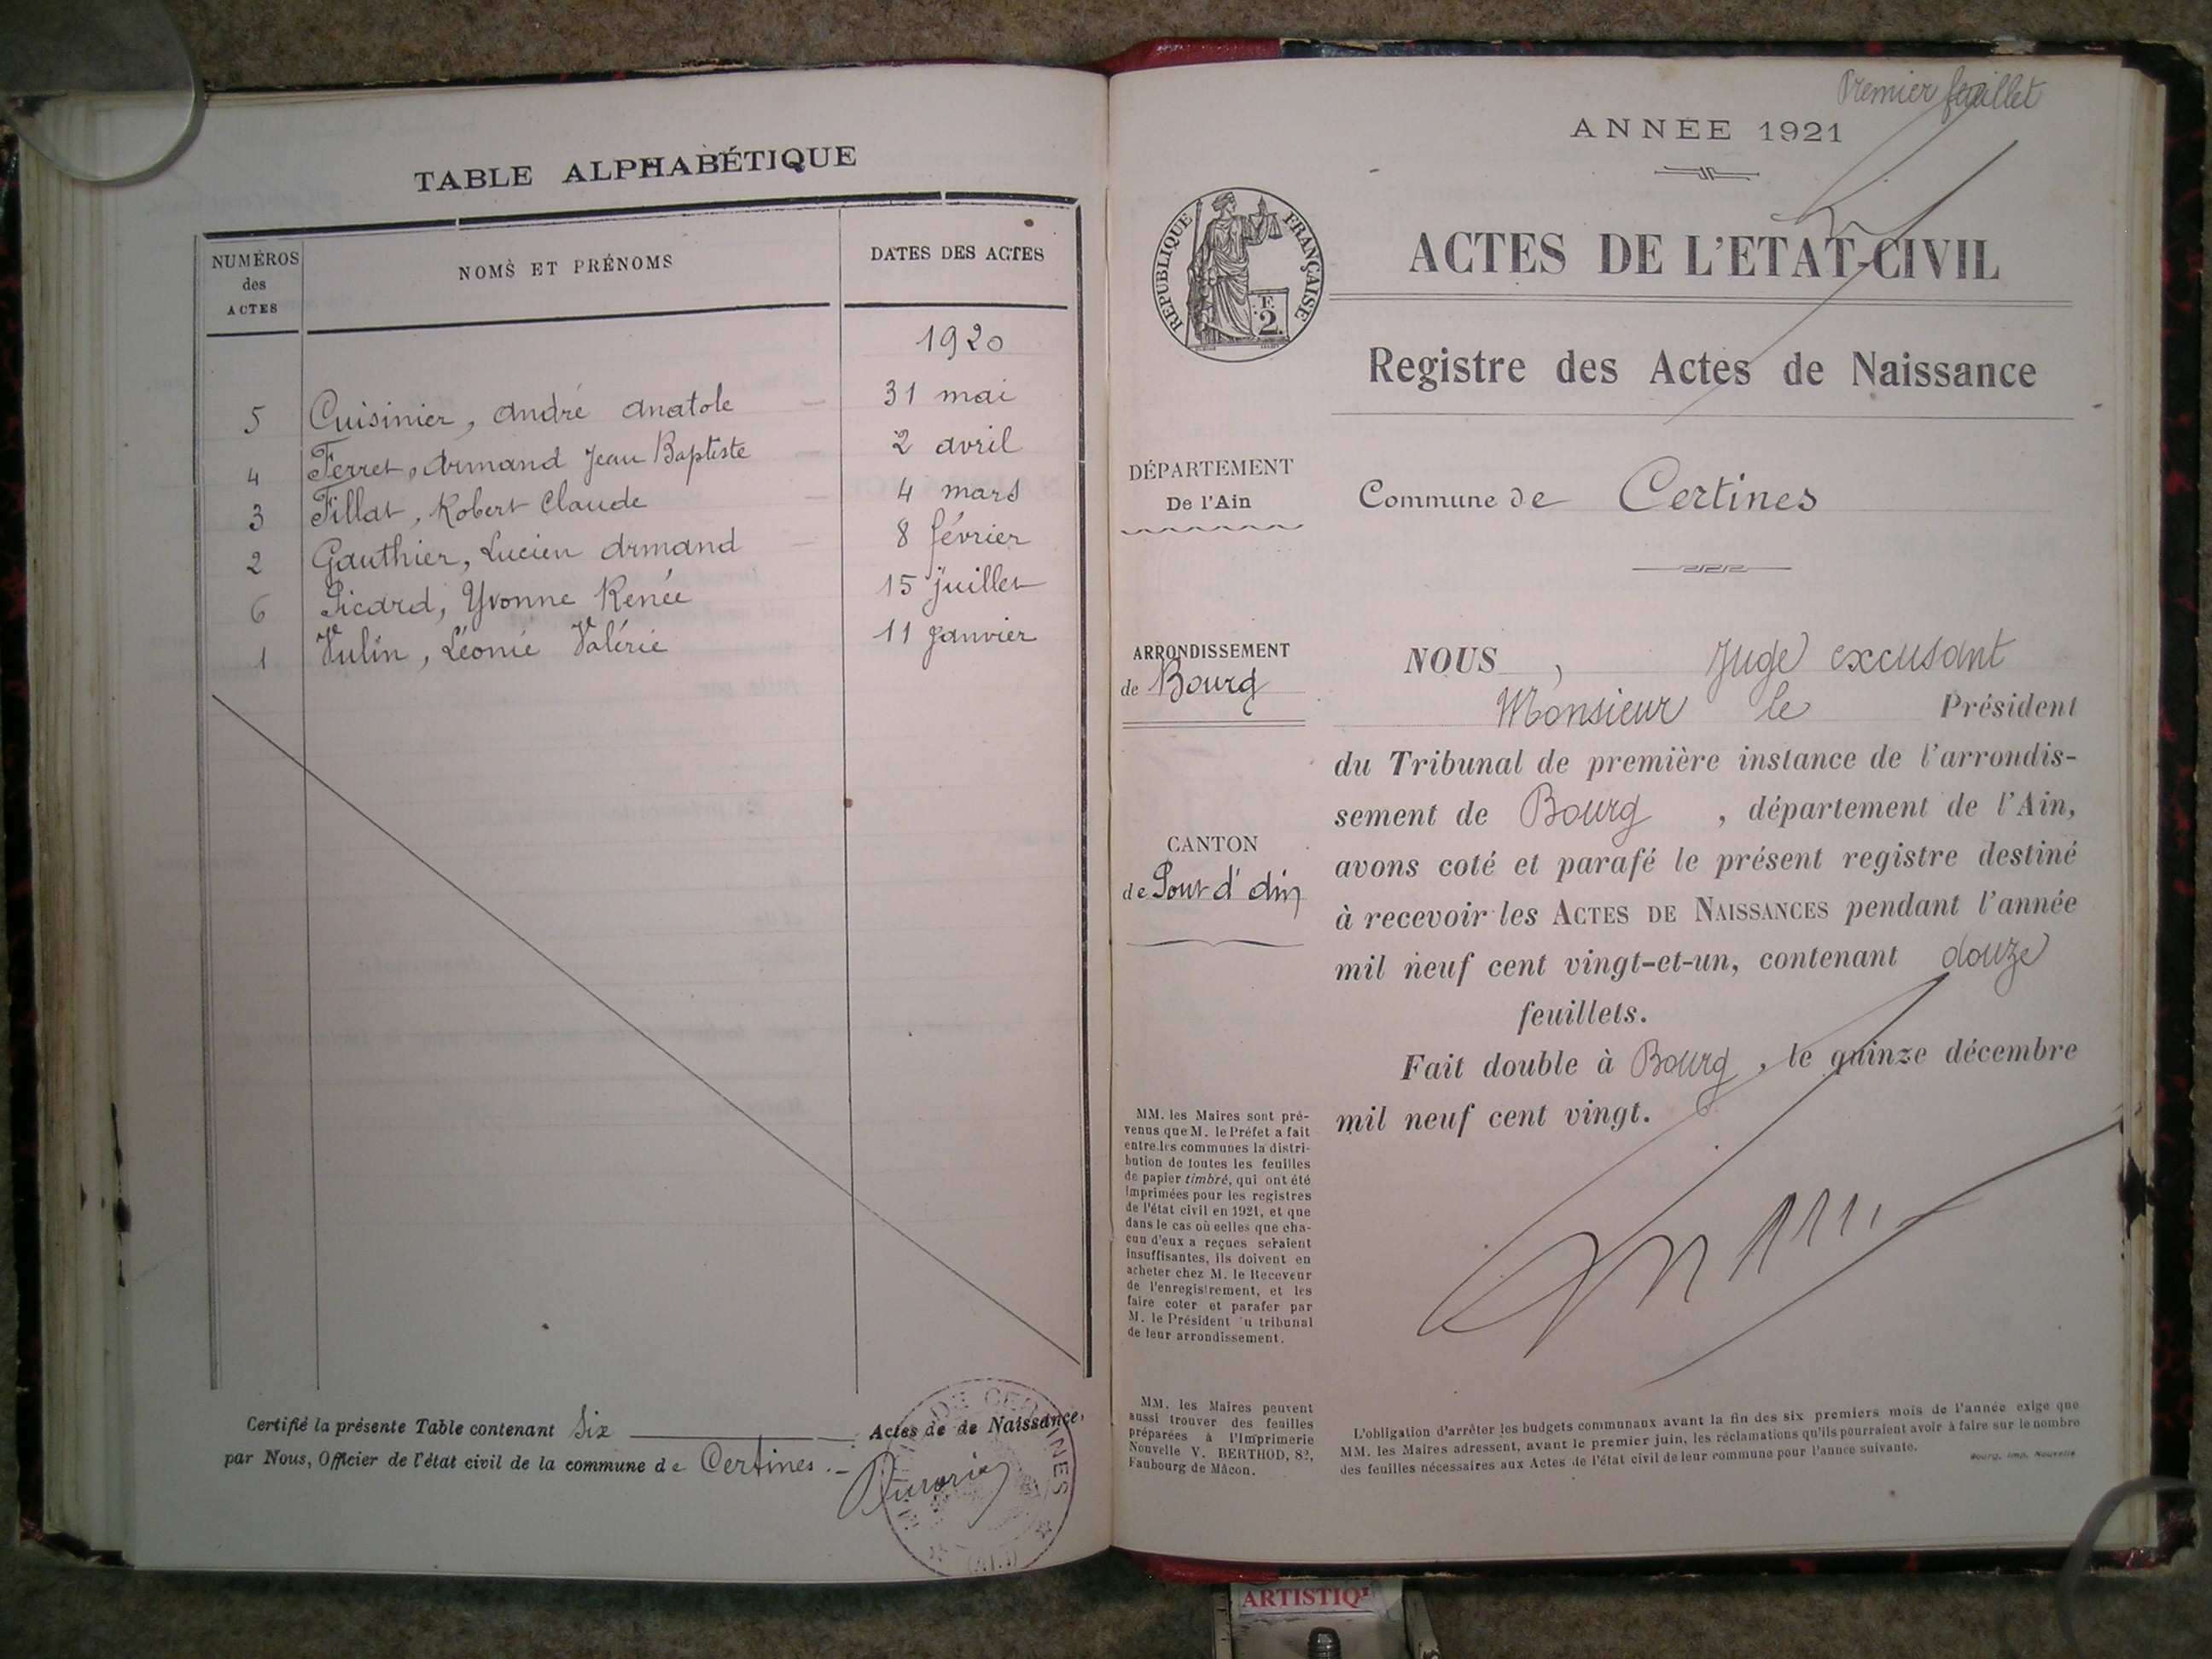 TABLE ALPHABÉTIQUE
NUMÉROS
des
ACTES
NOMS ET PRÉNOMS
DATES DES ACTES
1920
5 Cuisinier, André Anatole 31 mai
4 Ferret, Armand Jean Baptiste 2 avril
3 Fillat, Robert Claude 4 mars
2 Gauthier, Lucien Armand 8 février
6 Sicard, Yvonne Renée 15 juillet
1 Vulin, Léonie Valérie 11 janvier
Certifié la présente Table contenant Six Actes de de Naissance,
par Nous, Officier de l'état civil de la commune de Certines.
Premier feuillet
ANNÉE 1921
RÉPUBLIQUE FRANÇAISE
F.
2.
ACTES DE L'ETAT-CIVIL
Registre des Actes de Naissance
DÉPARTEMENT
De l'Ain
Commune de Certines
ARRONDISSEMENT
de Bourg
CANTON
de Pont d'Ain
NOUS, Juge excusant
Monsieur le Président
du Tribunal de première instance de l'arrondis-
sement de Bourg, département de l'Ain,
avons coté et parafé le présent registre destiné
à recevoir les ACTES DE NAISSANCES pendant l'année
mil neuf cent vingt-et-un, contenant douze
feuillets.
Fait double à Bourg, le quinze décembre
mil neuf cent vingt.
MM. les Maires sont pré-
venus que M. le Préfet a fait
entre les communes la distri-
bution de toutes les feuilles
de papier timbré, qui ont été
imprimées pour les registres
de l'état civil en 1921, et que
dans le cas où celles que cha-
cun d'eux a reçues seraient
insuffisantes, ils doivent en
acheter chez M. le Receveur
de l'enregistrement, et les
faire coter et parafer par
M. le Président u tribunal
de leur arrondissement.
MM. les Maires peuvent
aussi trouver des feuilles
préparées à l'Imprimerie
Nouvelle V. BERTHOD, 82,
Faubourg de Mâcon.
L'obligation d'arrêter les budgets communaux avant la fin des six premiers mois de l'année exige que
MM. les Maires adressent, avant le premier juin, les réclamations qu'ils pourraient avoir à faire sur le nombre
des feuilles nécessaires aux Actes de l'état civil de leur commune pour l'année suivante.
Bourg, Imp. Nouvelle
ARTISTIQ